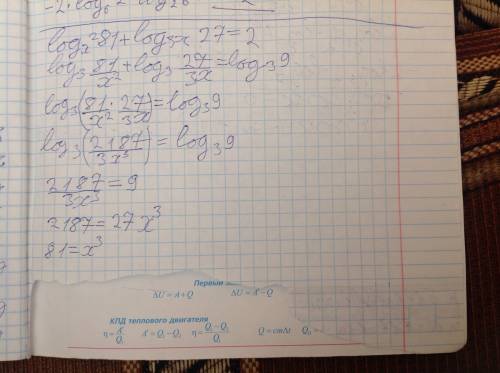 -2·log₆2
logₓ²81+log₃ₓ27=2
log₃ 81/x² + log₃ 27/3x = log₃9
log₃(81/x² · 27/3x) = log₃9
log₃(2187/3x³) = log₃9
2187/3x³ = 9
2187=27x³
81=x³
Первый
ΔU = A+Q ΔU = A'−Q
КПД теплового двигателя
η = A'/Q₁ A' = Q₁−Q₂ η = (Q₁−Q₂)/Q₁ Q = cmΔt Qп =